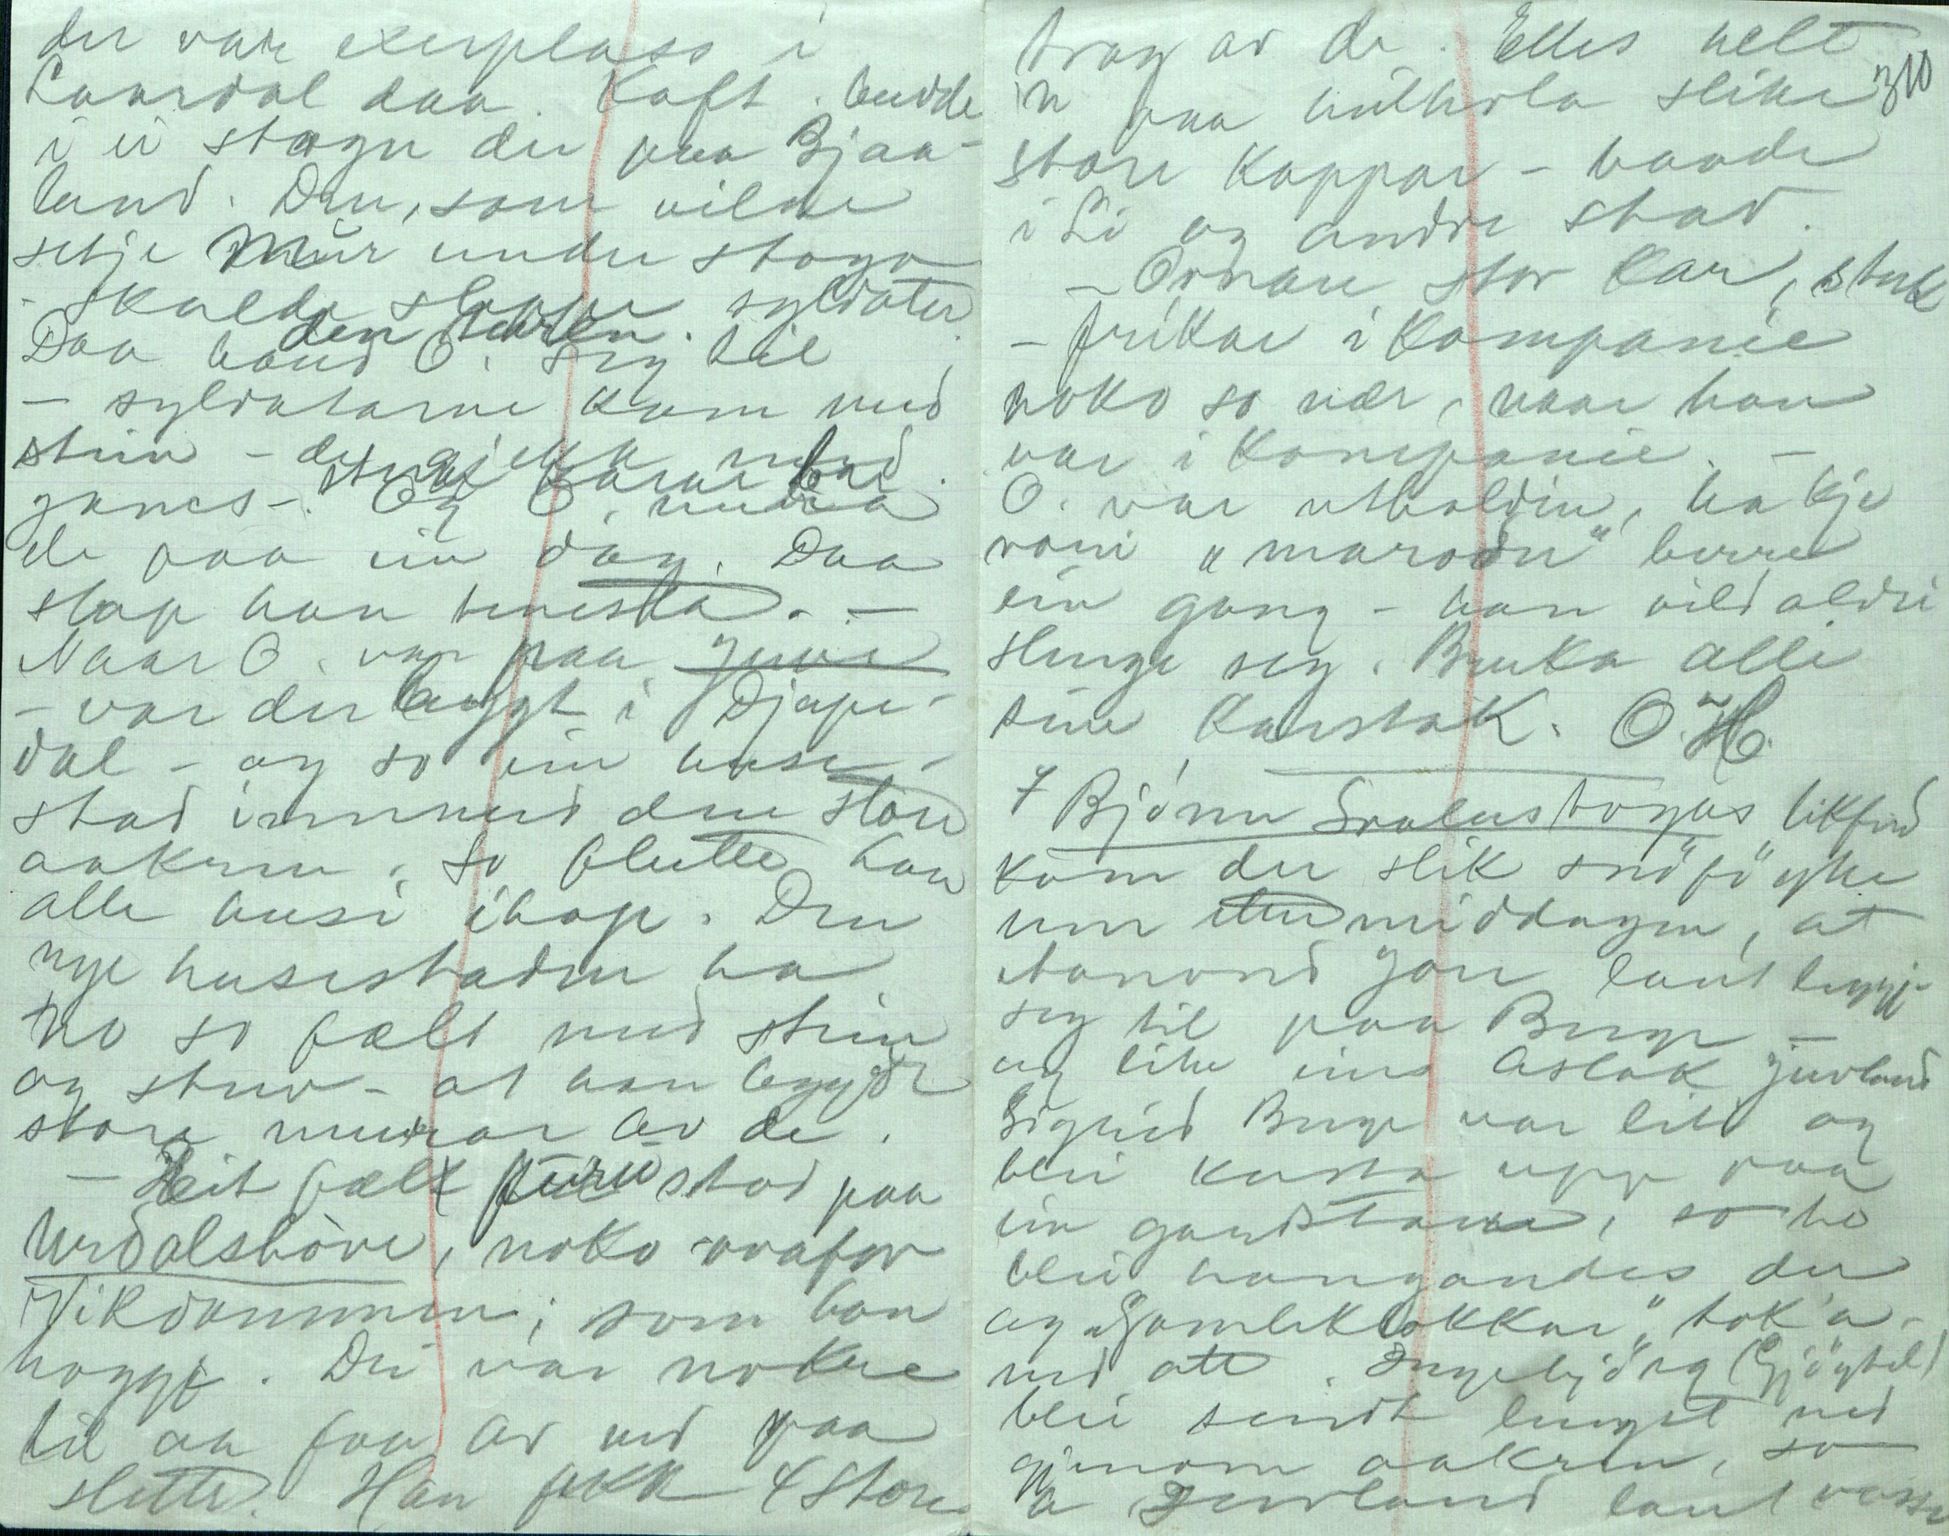 der var exerplass i
Laardal daa. Kaft. budde
i ei stogu der paa Bjaa-
land. Den, som vilde
setje mur under stogo
- skulde sleppe syldater.
den turen.
Daa baud O. seg til
- syldatarne kom med
stein - de gjekk med
sterke karar bar.
gones-. Og O. mura
de paa ein dag. Daa
slap han tenesta. -
Naar O. var paa Juve
- var der bygt i Djupe-
dal - og so ein huse-
stad innmed den store
aakren. So flutte han
alle husi ihop. Den
nye husestaden ha
no so fælt med stein
og sturv - at han bygde
store murar av de.
- Eit fælt furu stod paa
Urdalshove, noko ovafor
Vikdammen; som han
hoggje. Dei var nokre
til aa faa av ned paa
slette. Han fekk 4 store
310
trog av de. Elles helt
'n paa aa slike
store koppar - baade
i Li og andre stad.
- Ormar stor kar, sterk
- frikar i kompanie
noko so nær, naar han
var i kompanie. -
O. var uthaldin, ha kje
vori "maroder" berre
ein gong - han vild aldri
slenge seg. Bruka alli
sine karstak. O. H.
7 Bjønn Svalestogas likferd
kom der slik snöföykje
um middagen, at
Aanond Jore laut leggje
seg til paa Berge -
og like eins Aslak Juvland
Sigrid Berge var liti og
blei kasta upp paa
ein gardstaur, so ho
blei hangandes der
og "Gamleklokkar" tok'a
ned att. Ingebjörg (Gjöytil)
blei sendt lengst ned
gjenom aakren, so
'a Juvland laut vasse